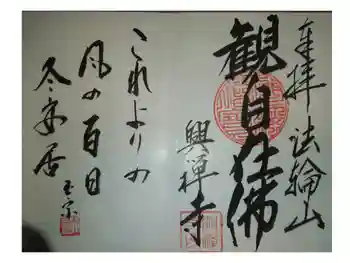 奉拝 法輪山
観自在佛
興禅寺
これよりの
風の百日
冬安居
玉宗